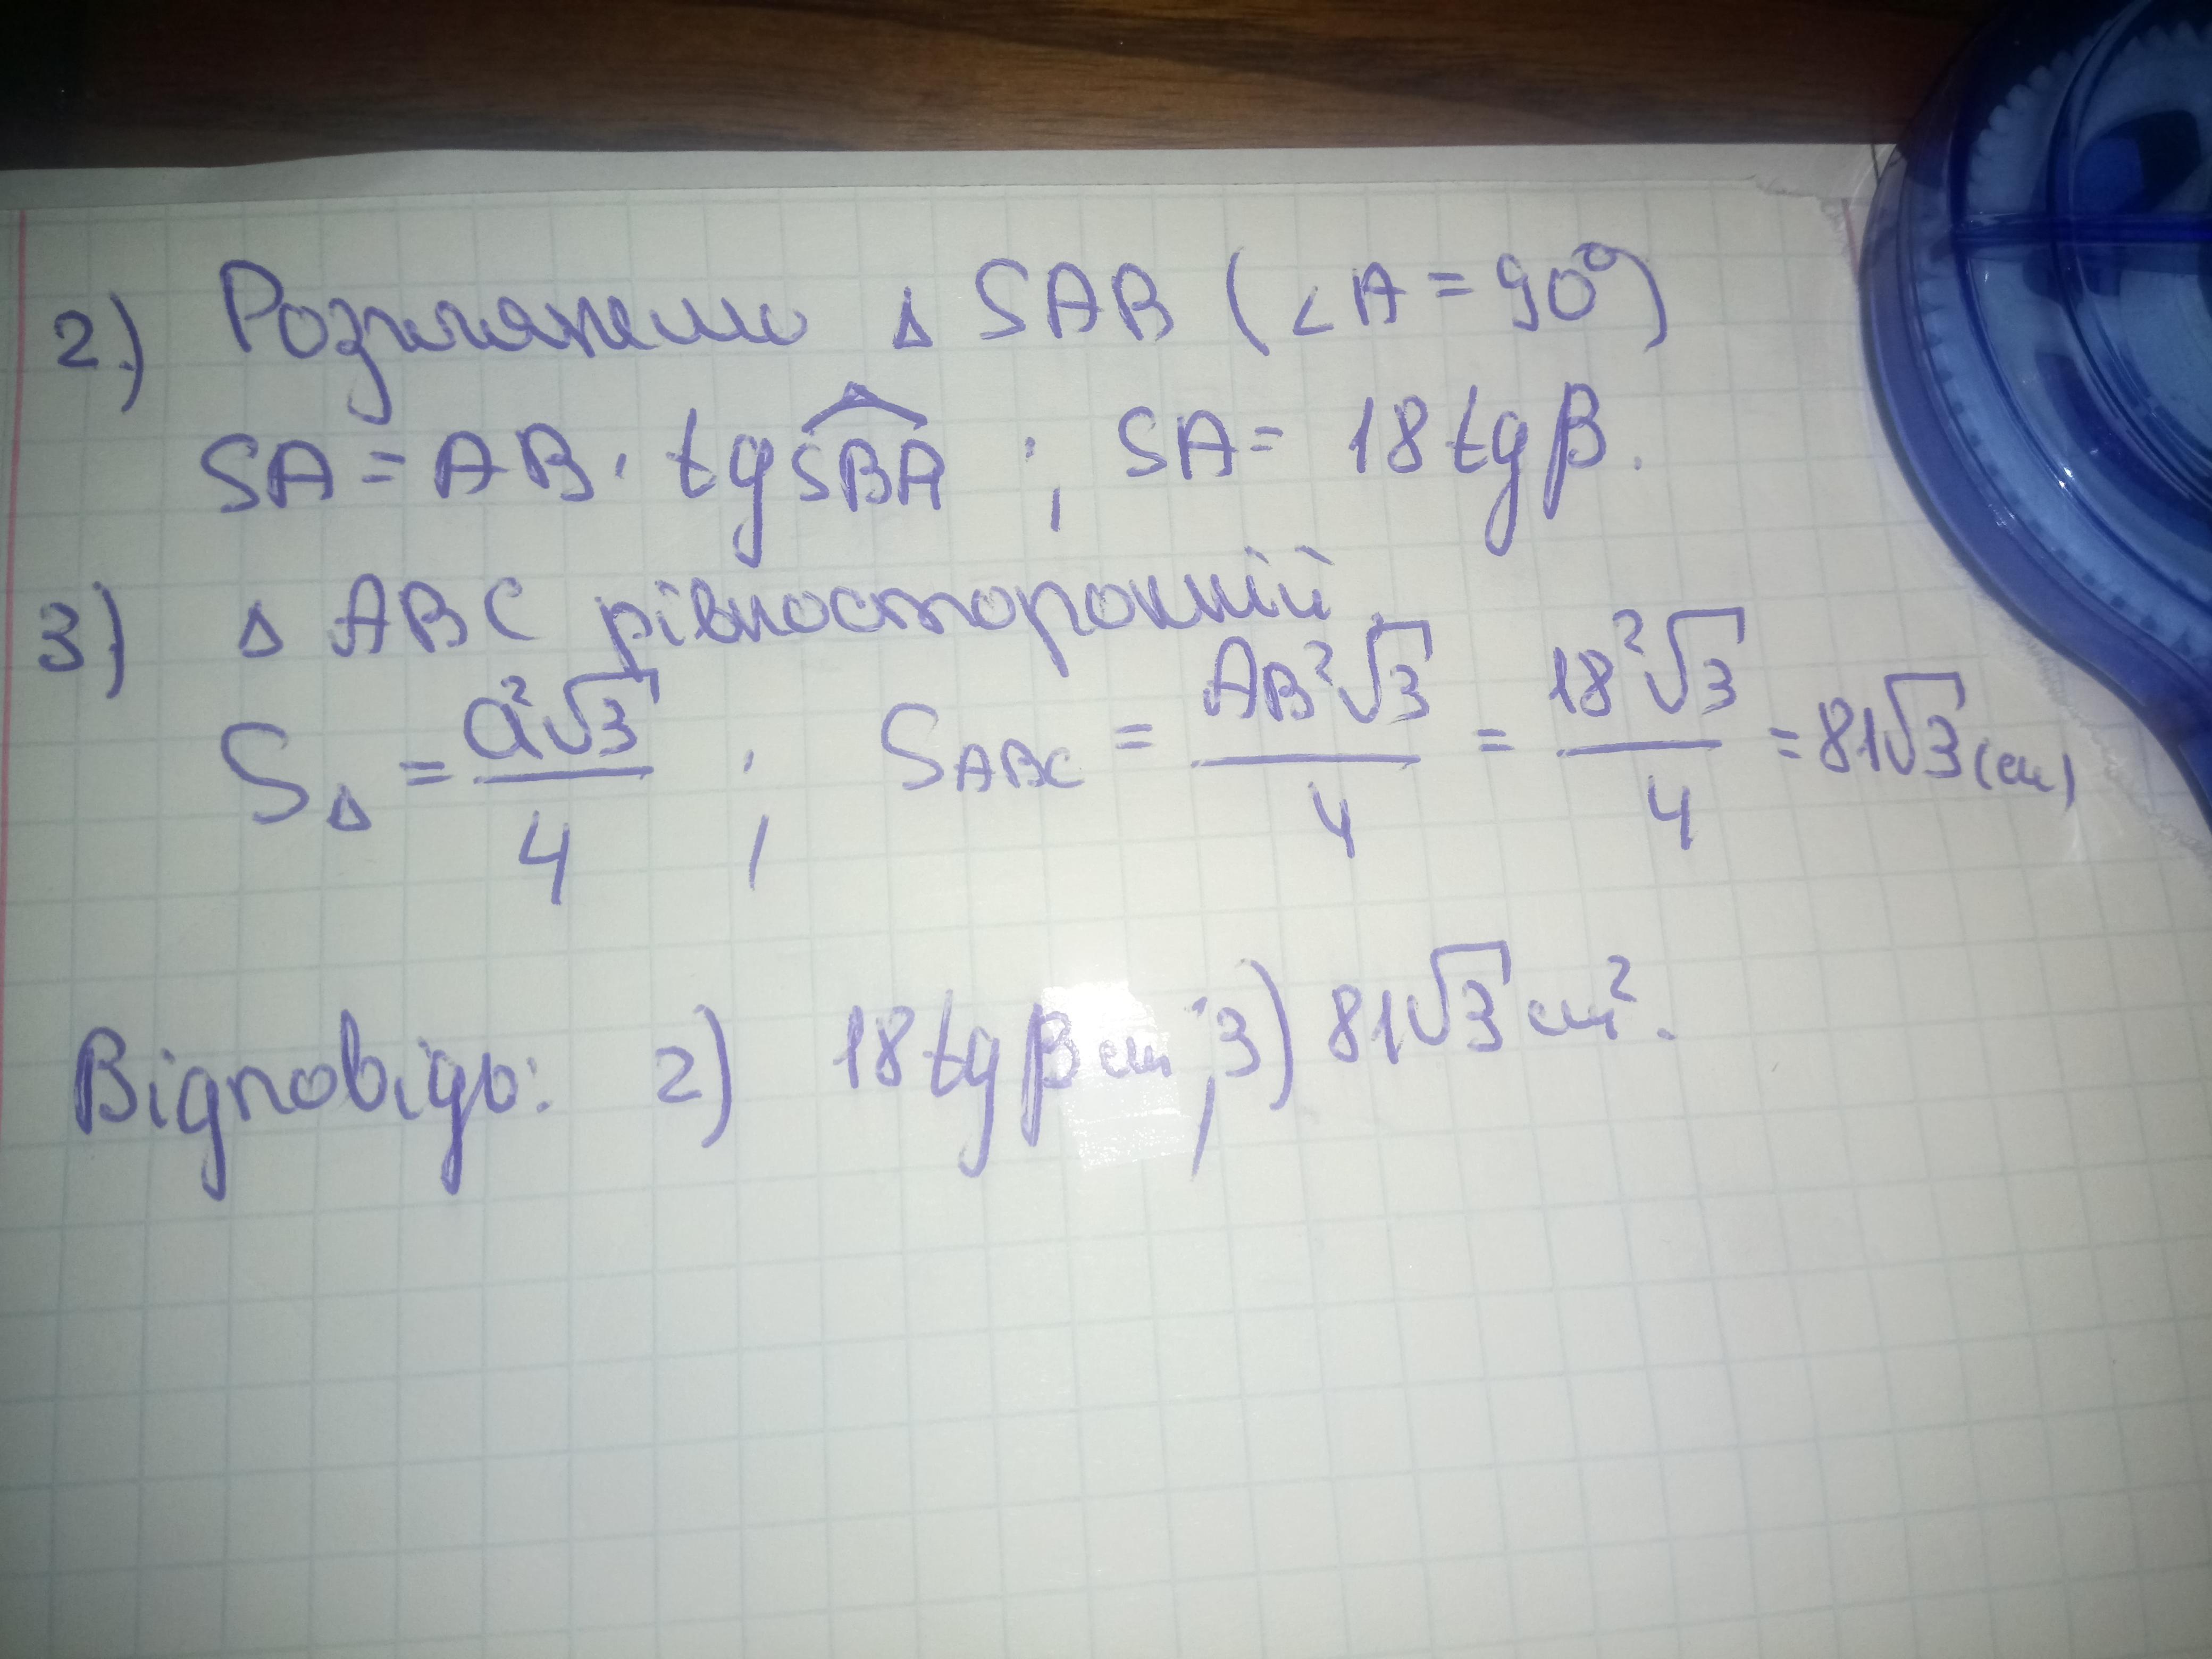 2) Розглянемо Δ SAB (∠A = 90°)
SA = AB · tg SBA ; SA = 18 tg β.
3) Δ ABC рівносторонній.
S_Δ = a²√3 / 4 ; S_ABC = AB²√3 / 4 = 18²√3 / 4 = 81√3 (см)
Відповідь: 2) 18 tg β см ; 3) 81√3 см².